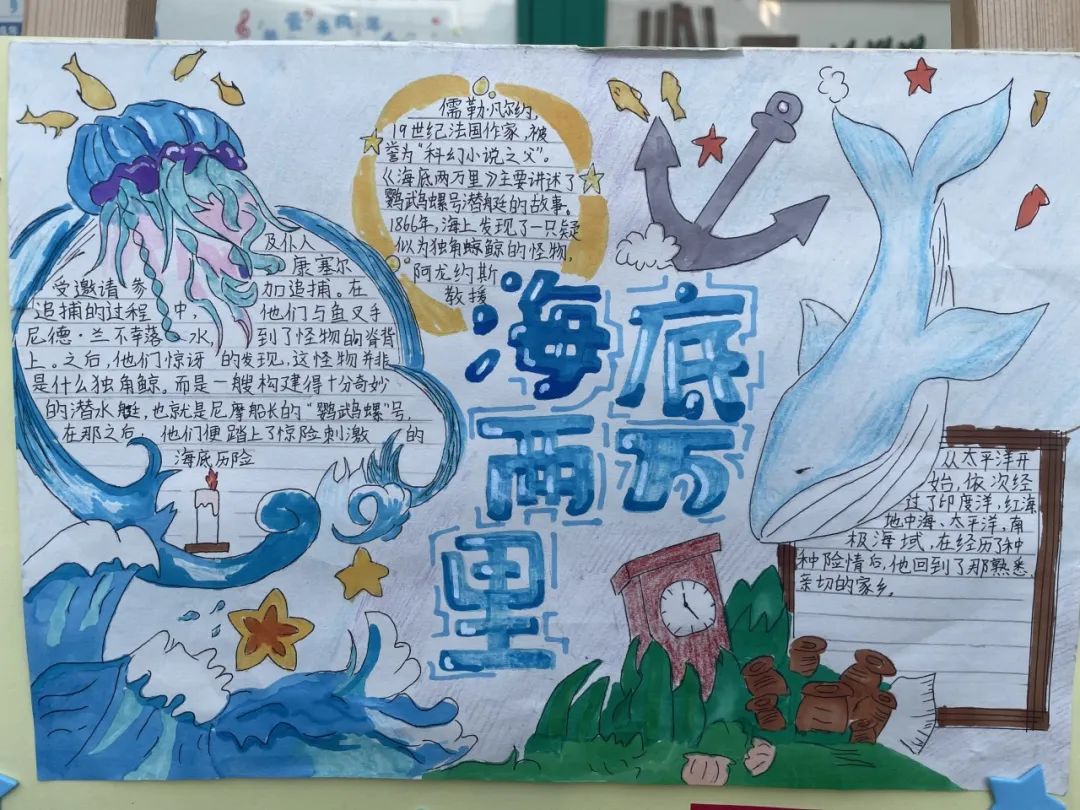 儒勒·凡尔纳,
19世纪法国作家,被
誉为“科幻小说之父”。
《海底两万里》主要讲述了
鹦鹉螺号潜艇的故事。
1866年,海上发现了一只疑
似为独角鲸的怪物,
阿龙约斯
教授
及仆人
康塞尔
受邀请参 加追捕。在
追捕的过程中, 他们与鱼叉手
尼德·兰不幸落水, 到了怪物的脊背
上。之后,他们惊讶的发现,这怪物并非
是什么独角鲸。而是一艘构建得十分奇妙
的潜水艇,也就是尼摩船长的“鹦鹉螺”号,
在那之后,他们便踏上了惊险刺激的
海底历险
海底
两万
里
从太平洋开
始,依次经
过了印度洋,红海
地中海、太平洋,南
极海域,在经历了种
种险情后,他回到了那熟悉,
亲切的家乡。